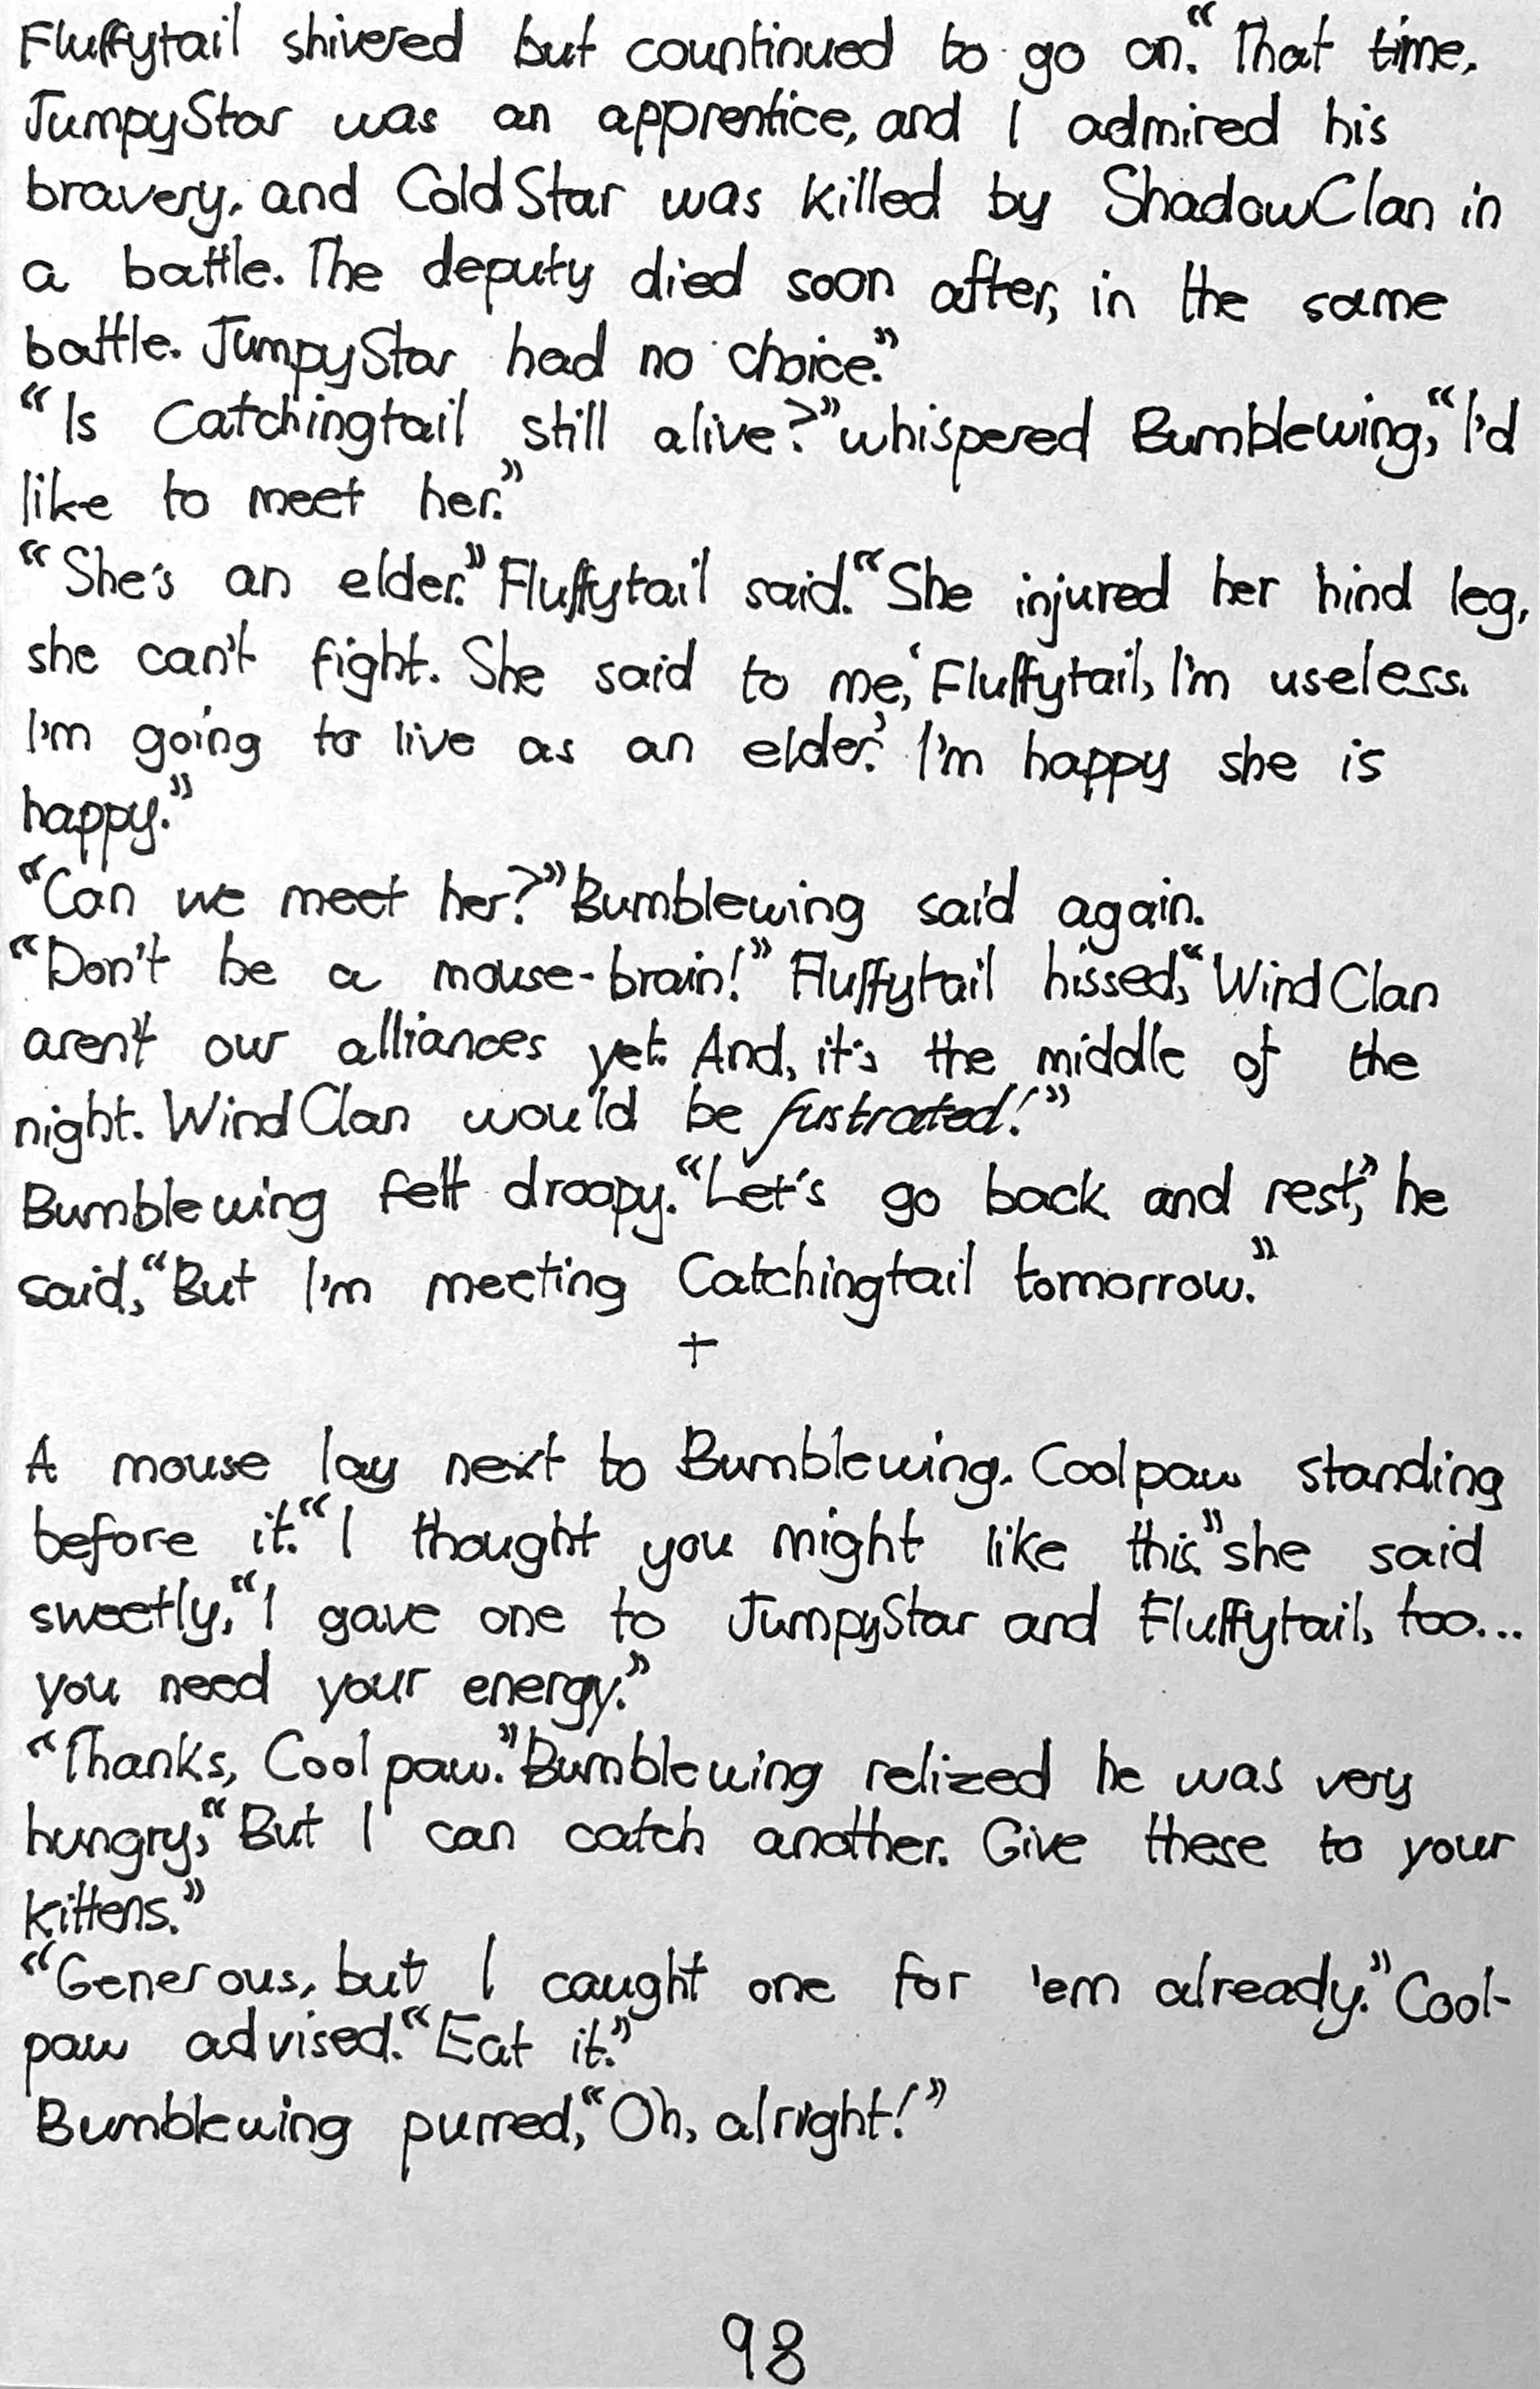 Fluffytail shivered but countinued to go on. “That time,
JumpyStar was an apprentice, and I admired his
bravery, and ColdStar was killed by ShadowClan in
a battle. The deputy died soon after, in the same
battle. JumpyStar had no choice.”
“Is Catchingtail still alive?” whispered Bumblewing, “I'd
like to meet her.”
“She's an elder.” Fluffytail said. “She injured her hind leg,
she can't fight. She said to me, ‘Fluffytail, I'm useless.
I'm going to live as an elder.’ I'm happy she is
happy.”
“Can we meet her?” Bumblewing said again.
“Don't be a mouse-brain!” Fluffytail hissed, “WindClan
aren't our alliances yet. And, it's the middle of the
night. WindClan would be fustrated!”
Bumblewing felt droopy. “Let's go back and rest,” he
said, “But I'm meeting Catchingtail tomorrow.”
+
A mouse lay next to Bumblewing. Coolpaw standing
before it. “I thought you might like this,” she said
sweetly, “I gave one to JumpyStar and Fluffytail, too...
you need your energy.”
“Thanks, Coolpaw.” Bumblewing relized he was very
hungry, “But I can catch another. Give these to your
kittens.”
“Generous, but I caught one for 'em already.” Cool-
paw advised. “Eat it.”
Bumblewing purred, “Oh, alright!”
98